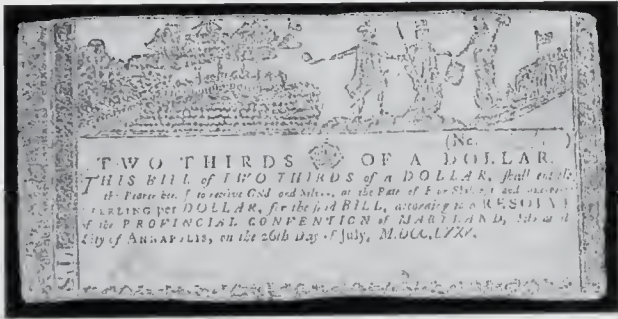 (No. )
TWO THIRDS OF A DOLLAR.
THIS BILL of TWO THIRDS of a DOLLAR, shall entitle
the Bearer hereof to receive Gold and Silver, at the Rate of Four Shillings and
STERLING per DOLLAR, for the said BILL, according to a RESOLVE
of the PROVINCIAL CONVENTION of MARYLAND, held at the
City of ANNAPOLIS, on the 26th Day of July, M.DCC,LXXV.